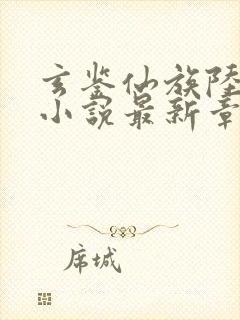 玄鉴仙族陸
小説最新章
席城